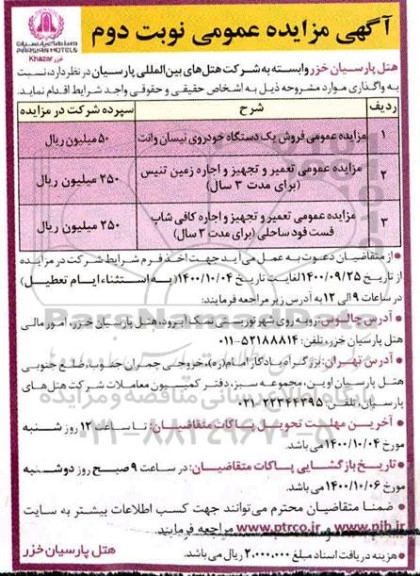 آگهی مزایده عمومی نوبت دوم
هتلهای پارسیان
PARSIAN HOTELS
خزر Khazar
هتل پارسیان خزر وابسته به شرکت هتل‌های بین‌المللی پارسیان در نظر دارد، نسبت
به واگذاری موارد مشروحه ذیل به اشخاص حقیقی و حقوقی واجد شرایط اقدام نماید.
ردیف شرح سپرده شرکت در مزایده
۱ مزایده عمومی فروش یک دستگاه خودروی نیسان وانت ۵۰ میلیون ریال
۲ مزایده عمومی تعمیر و تجهیز و اجاره زمین تنیس ۲۵۰ میلیون ریال
(برای مدت ۳ سال)
۳ مزایده عمومی تعمیر و تجهیز و اجاره کافی شاپ ۲۵۰ میلیون ریال
فست فود ساحلی (برای مدت ۳ سال)
• از متقاضیان دعوت به عمل می‌آید جهت اخذ فرم شرایط شرکت در مزایده
از تاریخ ۱۴۰۰/۰۹/۲۵ لغایت تاریخ ۱۴۰۰/۱۰/۰۴ (به استثناء ایام تعطیل)
در ساعات ۹ الی ۱۲ به آدرس زیر مراجعه فرمایند:
• آدرس چالوس: روبه روی شهر توریستی نمک آبرود، هتل پارسیان خزر، امور مالی
هتل پارسیان خزر، تلفن: ۵۲۱۸۸۸۱۴-۰۱۱
• آدرس تهران: بزرگراه یادگار امام(ره)، خروجی چمران جنوب، ضلع جنوبی
هتل پارسیان اوین، مجموعه سبز، دفتر کمیسیون معاملات شرکت هتل‌های
پارسیان، تلفن: ۲۲۳۴۴۳۹۵-۰۲۱
• آخرین مهلت تحویل پاکات متقاضیان: تا ساعت ۱۲ روز شنبه
مورخ ۱۴۰۰/۱۰/۰۴ می‌باشد.
• تاریخ بازگشایی پاکات متقاضیان: در ساعت ۹ صبح روز دوشنبه
مورخ ۱۴۰۰/۱۰/۰۶ می‌باشد.
• ضمنا متقاضیان محترم می‌توانند جهت کسب اطلاعات بیشتر به سایت
www.pih.ir و www.ptrco.ir مراجعه فرمایند
• هزینه دریافت اسناد مبلغ ۲,۰۰۰,۰۰۰ ریال می‌باشد.
هتل پارسیان خزر